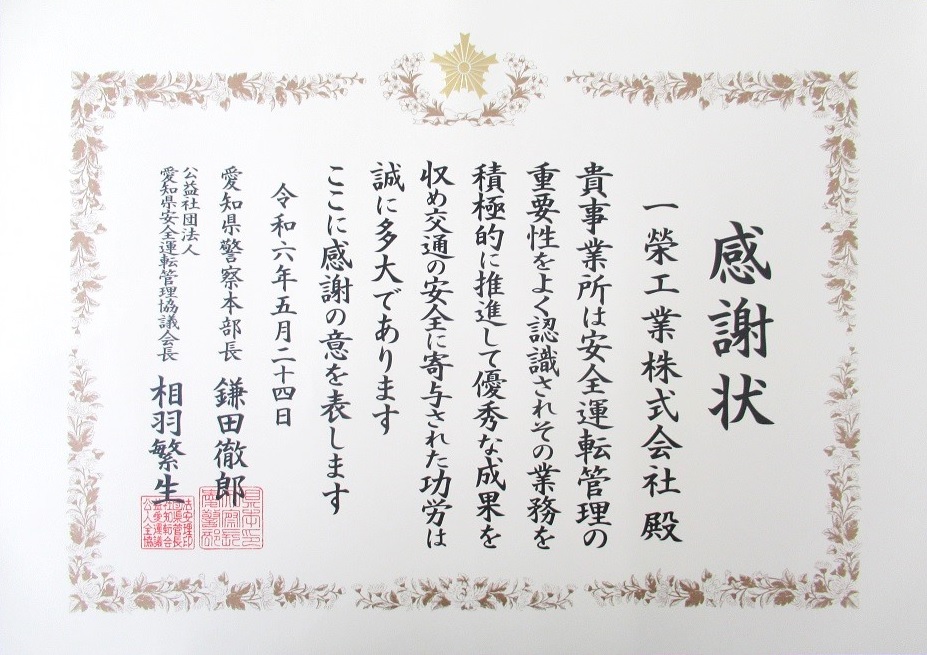 感謝状
一榮工業株式会社殿
貴事業所は安全運転管理の
重要性をよく認識されその業務を
積極的に推進して優秀な成果を
収め交通の安全に寄与された功労は
誠に多大であります
ここに感謝の意を表します
令和六年五月二十四日
愛知県警察本部長 鎌田徹郎
公益社団法人
愛知県安全運転管理協議会長 相羽繁生